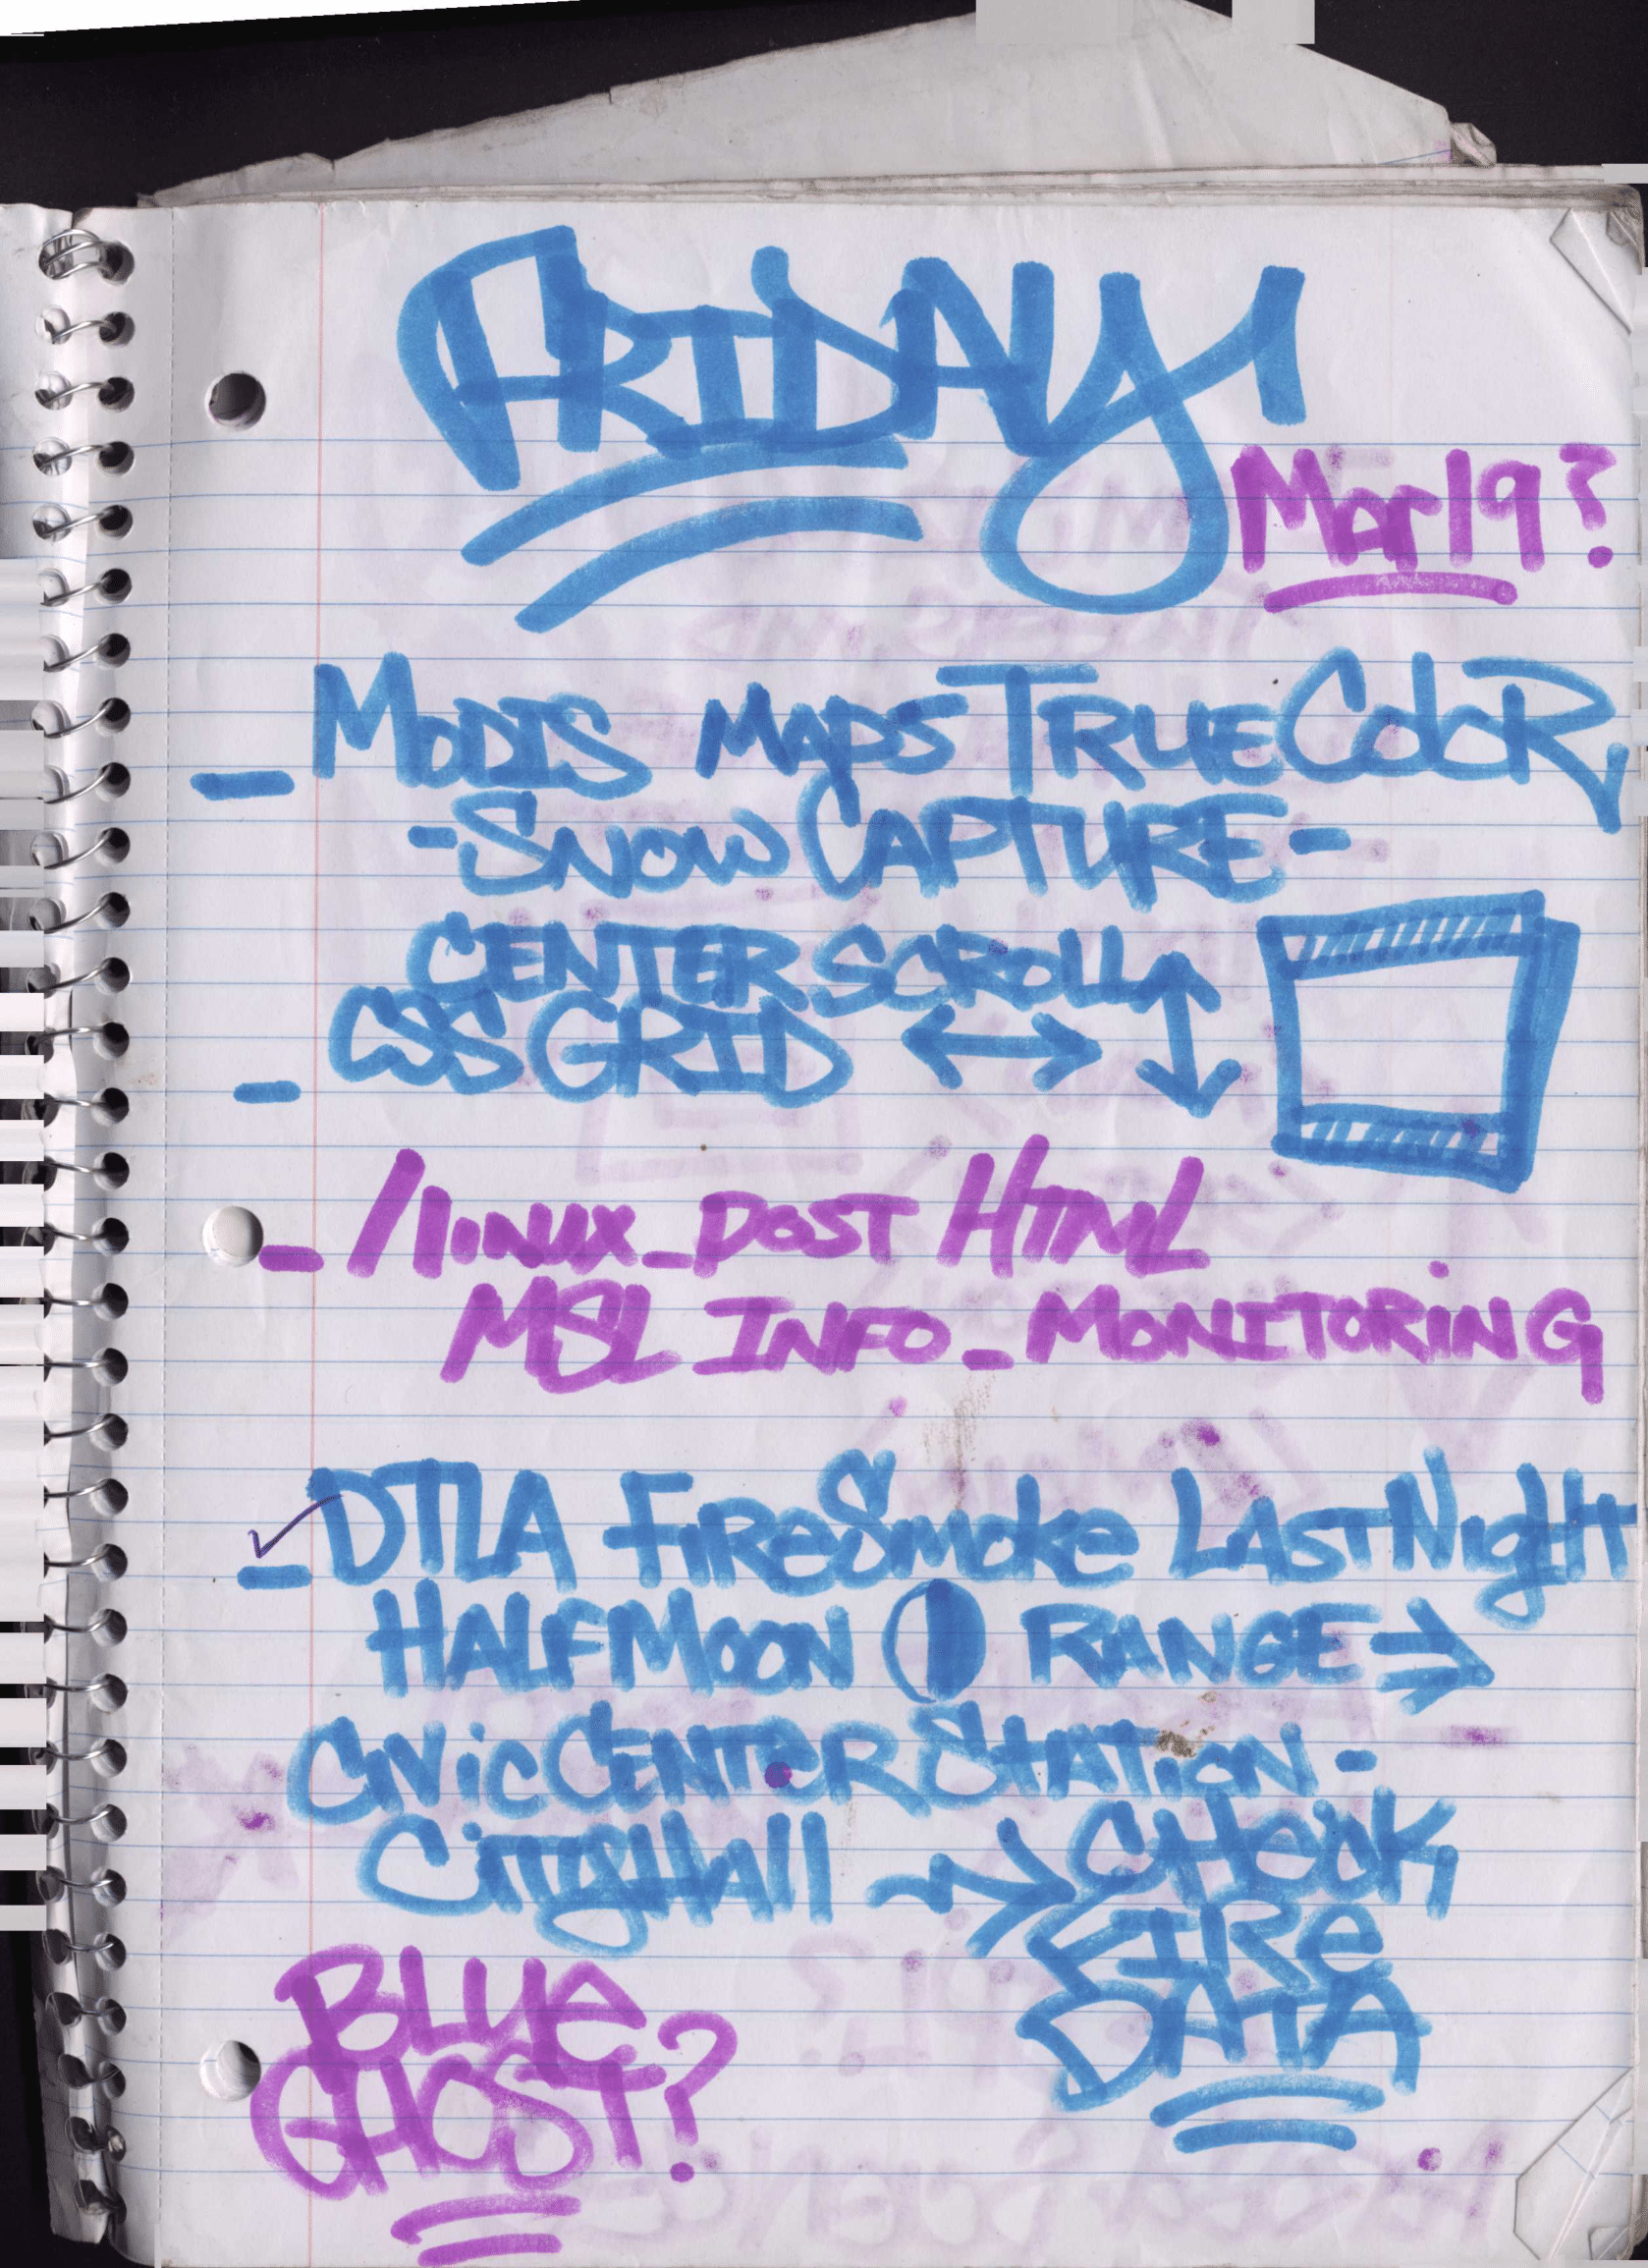 FRIDAY
Mar 19?
- MODIS MAPS TRUE COLOR,
- SNOW CAPTURE -
CENTER SCROLL
- CSS GRID ↔ ↕
- /linux_post HTML
MSL INFO_MONITORING
✓ - DTLA FIRE SMOKE LAST NIGHT
HALF MOON ◐ RANGE →
CIVIC CENTER STATION -
CITY HALL → CHECK
FIRE
DATA
BLUE
GHOST?